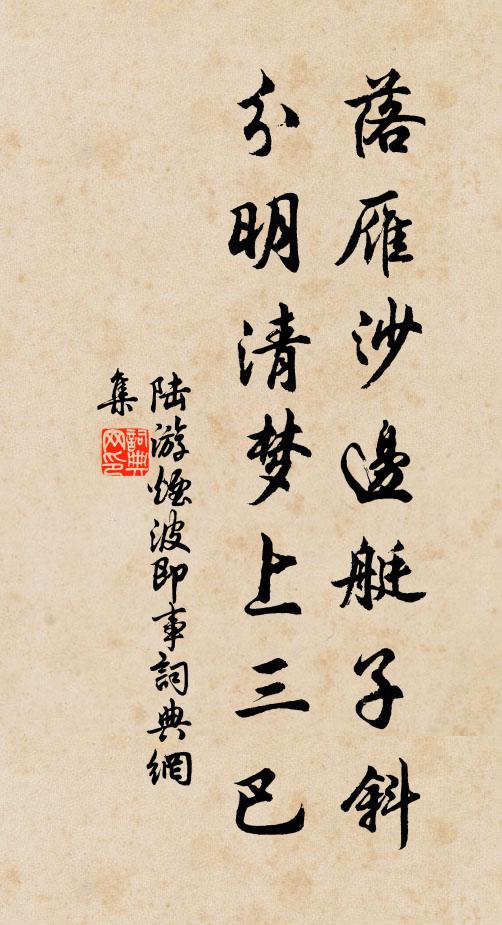 落雁沙邊艇子斜
分明清梦上三巴
陆游煙波即事詞典網
集
詞典
网印